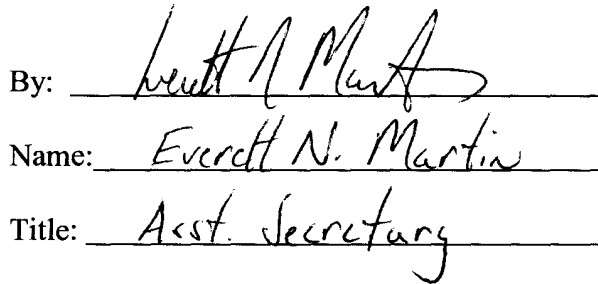 By: Everett N Martin
Name: Everett N. Martin
Title: Asst. Secretary